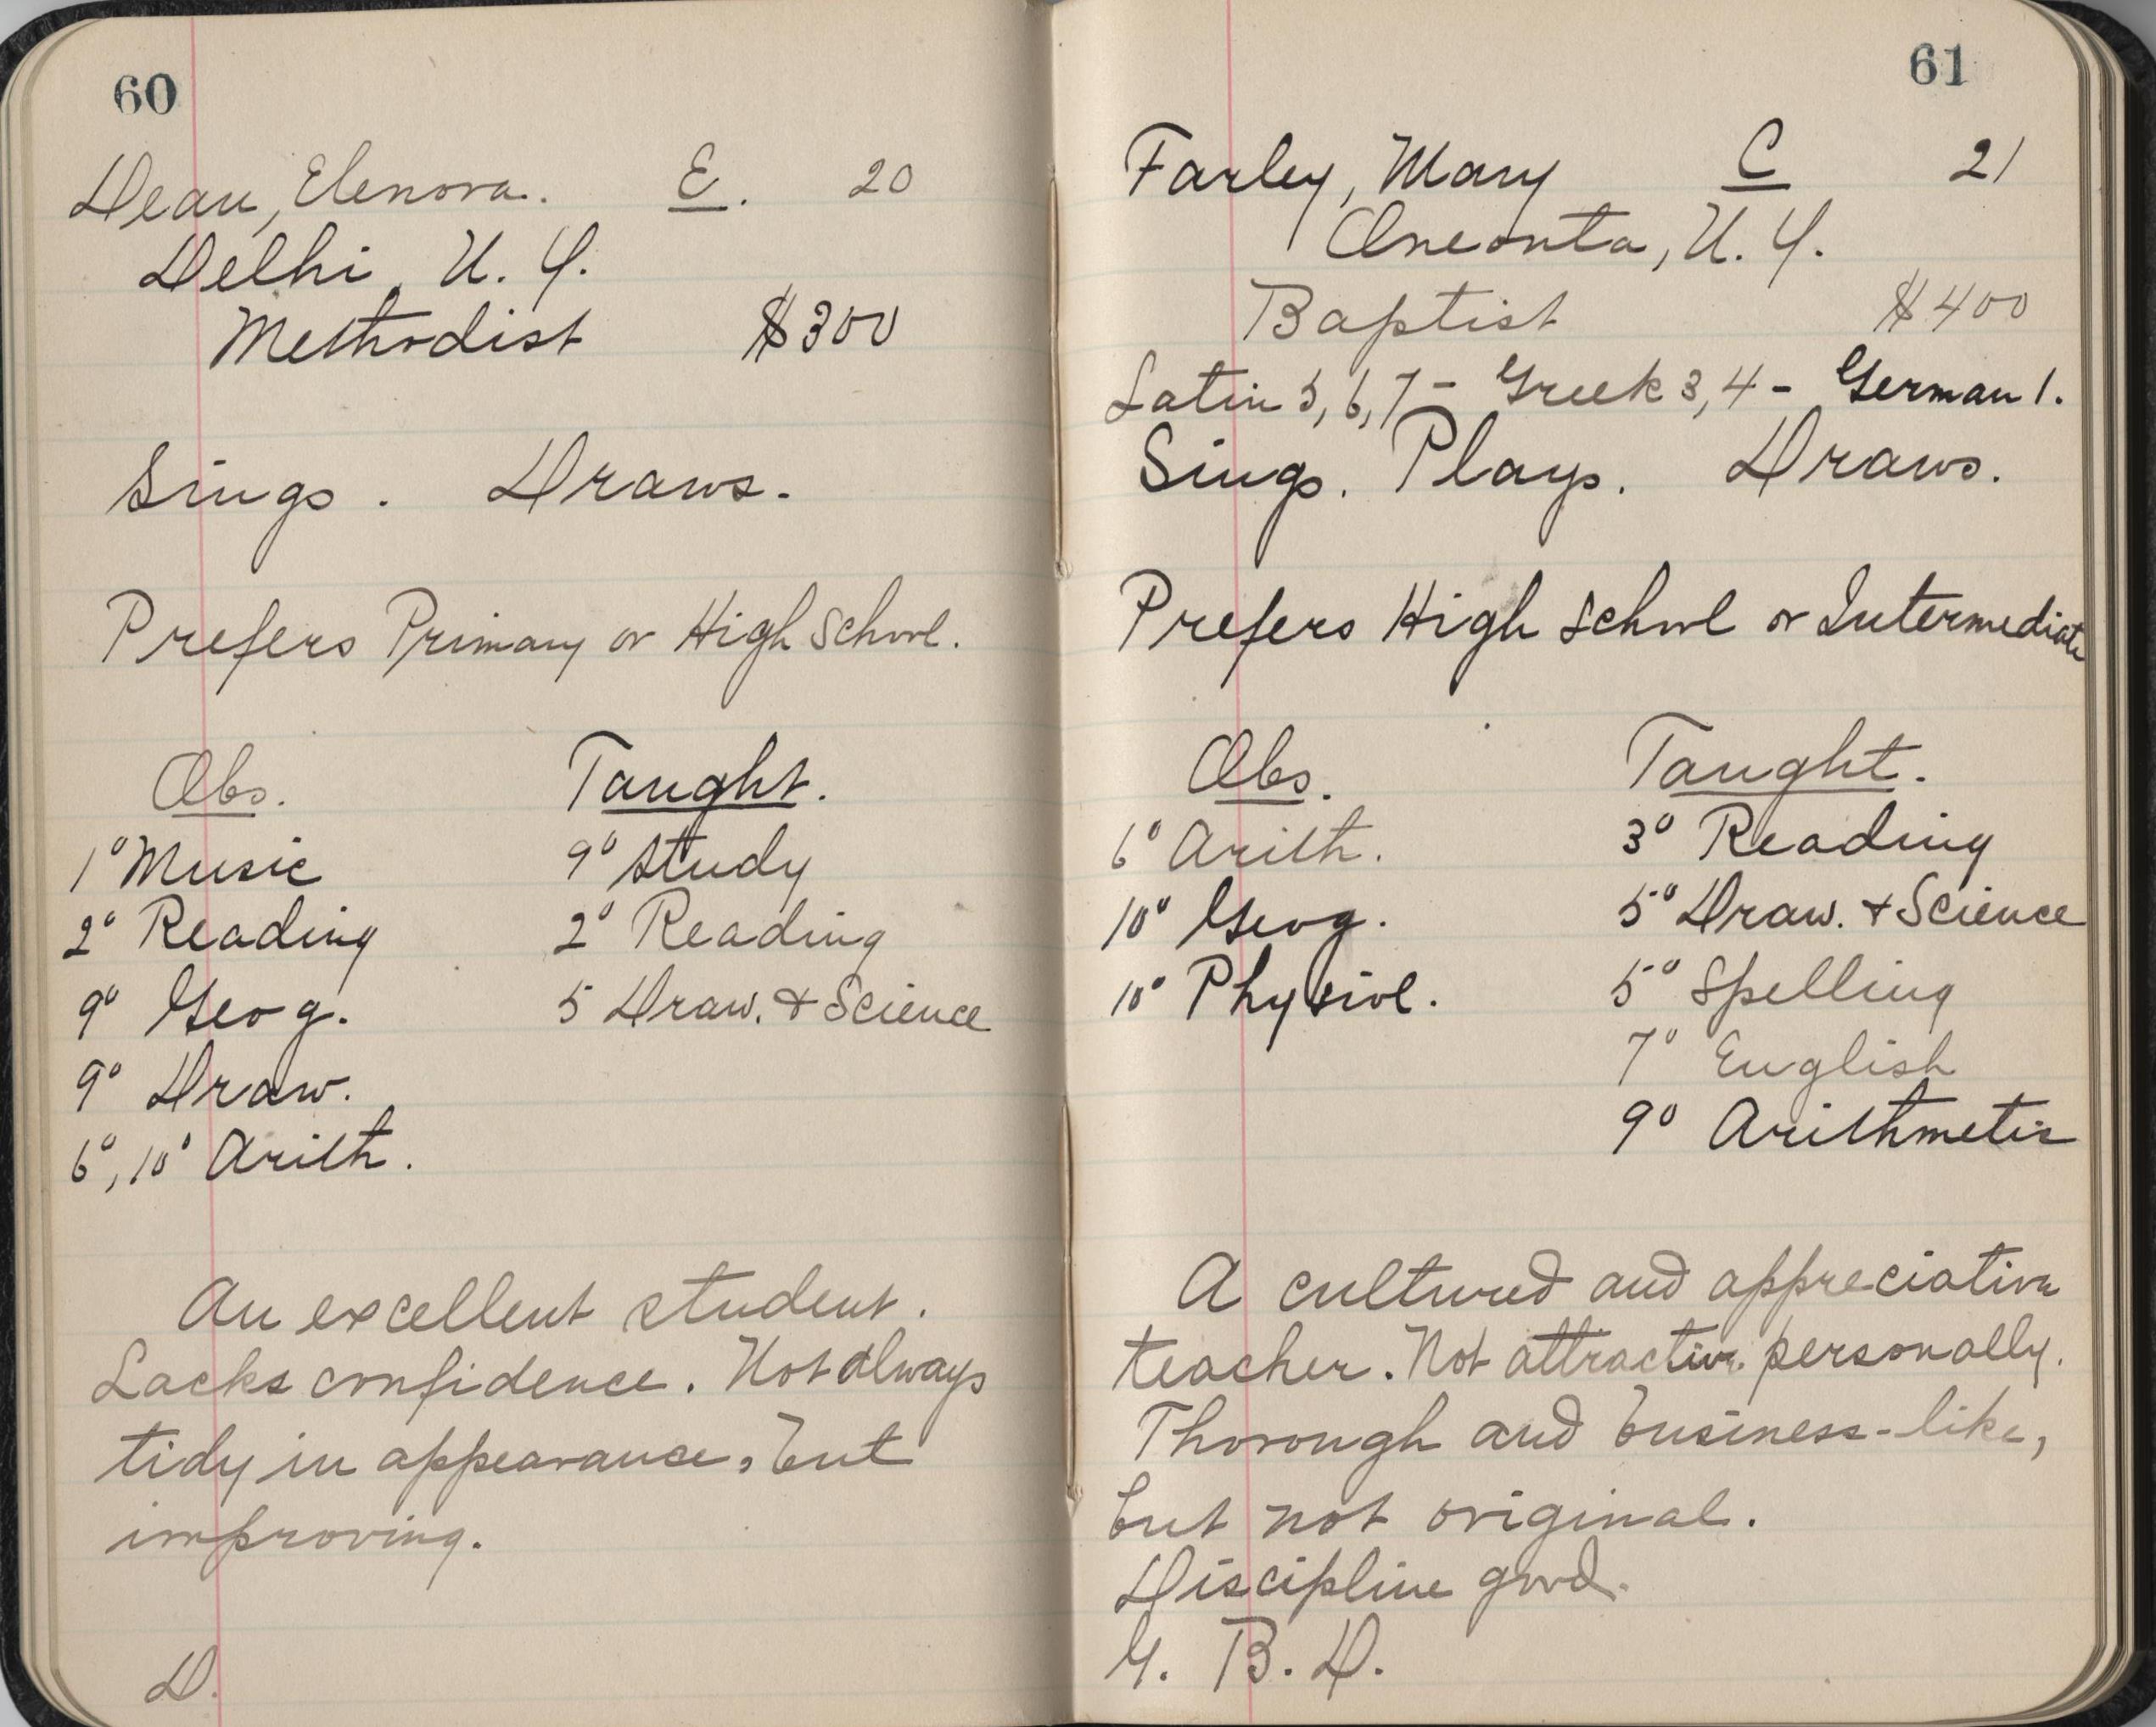 60
Dean, Elenora. E. 20
Delhi, N. Y.
Methodist $300
Sings. Draws.
Prefers Primary or High School.
Obs. Taught.
1° Music 9° Study
2° Reading 2° Reading
9° Geog. 5 Draw. & Science
9° Draw.
6°, 10° Arith.
An excellent student.
Lacks confidence. Not always
tidy in appearance, but
improving.
D.
61
Farley, Mary C 21
Oneonta, N. Y.
Baptist $400
Latin 5, 6, 7 - Greek 3, 4 - German 1.
Sings. Plays. Draws.
Prefers High School or Intermediate
Obs. Taught.
6° Arith. 3° Reading
10° Geog. 5° Draw. & Science
10° Physiol. 5° Spelling
7° English
9° Arithmetic
A cultured and appreciative
teacher. Not attractive personally.
Thorough and business-like,
but not original.
Discipline good.
G. B. D.